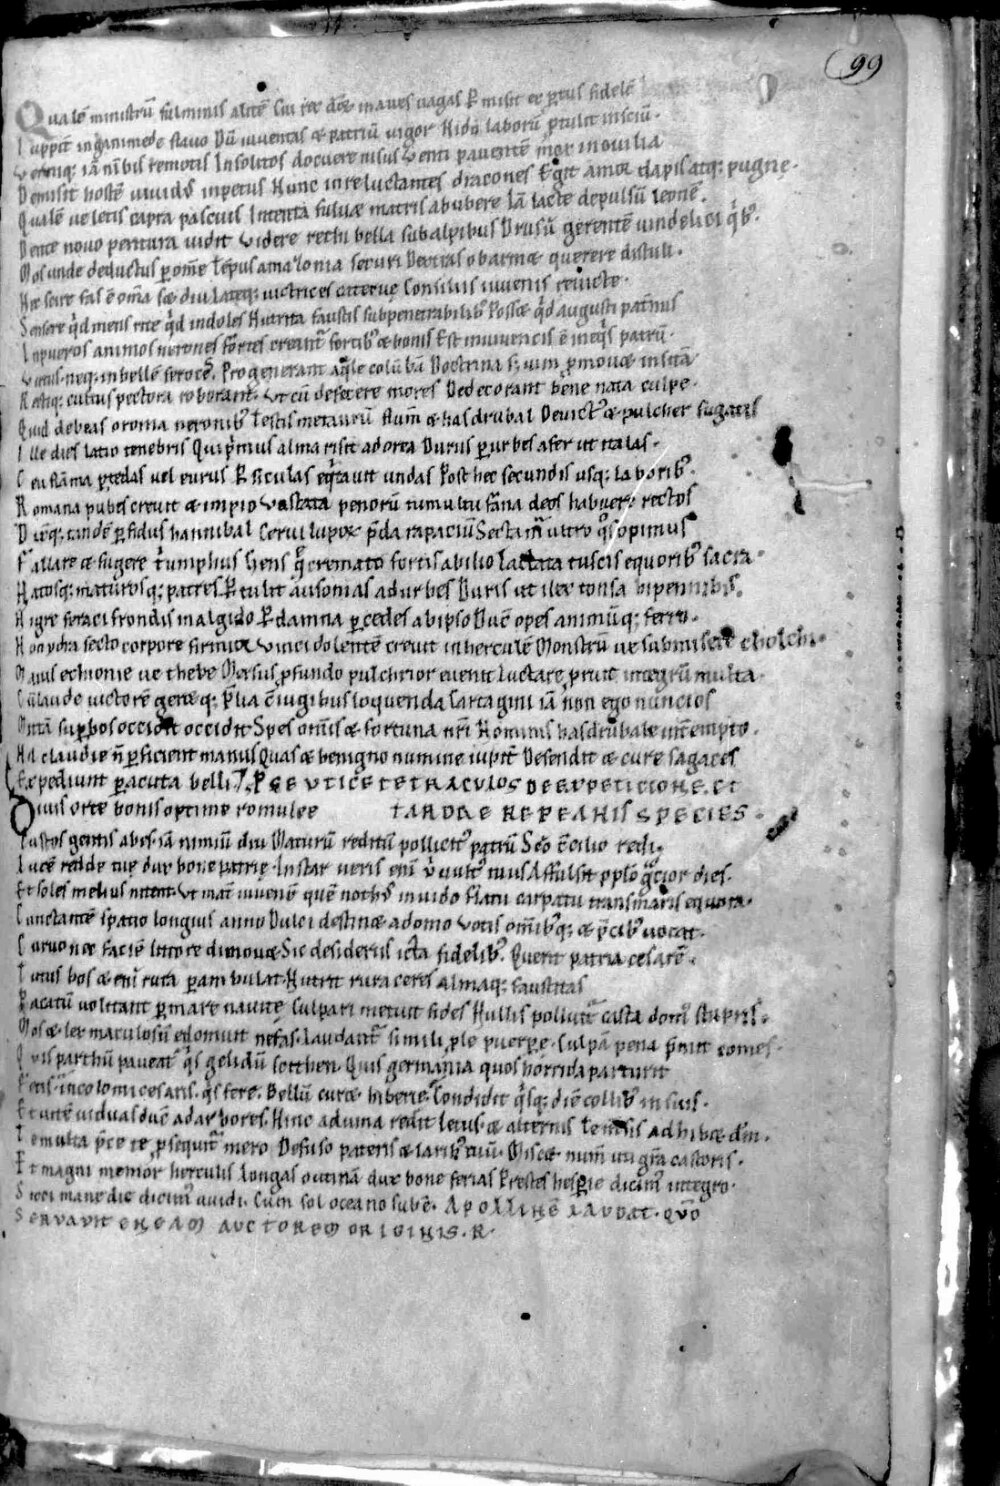 99
Qualē ministrū fulminis alitē Cui rex deoꝝ in aves vagas Pmisit expertus fidelē
Iuppiť inganimede flavo Olī iuventas & patriū vigor Nidū laborū ꝓtulit insciū.
Verniq; iā nībis remotis Insolitos docuere nisus Venti paventē mox in ovilia
Demisit hostē vividus inpetus Nunc in reluctantes dracones Egit amor dapis atq; pugne.
Qualē ve letis capra pascuis Intenta fulvae matris ab ubere Iā lacte depulsū leonē.
Dente novo peritura vidit Videre rethi bella sub alpibus Drusū gerentē vindelici
Mos unde deductus ꝑ omē tēpus amazonia securi Dextras obarmæ querere distuli.
Nec scire fas ē omia sæ diu lateq; victrices caterve Consiliis iuvenis revicte.
Sensere qͥd mens rite qͥd indoles Nutrita faustis sub penetralibꝰ Posset qͥd augusti patnus
In pueros animos nerones Fortes creant fortibꝰ & bonis Est in iuvencis ē in eqͥs patrū.
Virtus. neq; inbellē feroces. Progenerant aqͥle colūbā Doctrina sꝫ vim ꝓmovæ insitā
Rectiq; cultus pectora roborant. Ut cū defecere mores Dedecorant bene nata culpe.
Quid debeas o roma neronibꝰ Testis metaurū flum & hasdrubal Devictꝰ & pulcher fugatis
Ille dies latio tenebris Qui pͥmus alma risit adorea Durus ꝑ urbes afer ut italas.
Ceu flāma ꝑ tedas vel eurus P siculas eqͥtavit undas Post hec secundis usq; laboribꝰ.
Romana pubes crevit & impio Vastata penorū tumultu fana deos habuere rectos
Dixitq; tandē ꝑfidus hannibal Cervi lupoꝝ pͣda rapaciū Sectamͬ ultro qͦs opimus
Fallare & fugere ē triumphus Gens qͤ cremato fortis ab ilio Iactata tuscis equoribꝰ sacra.
Natosq; maturosq; patres Ptulit ausonias ad urbes Duris ut ilex tonsa bipennibꝰ.
Nigre feraci frondis in algido P damna ꝑ cedes ab ipso Ducē opes animūq; ferro.
Non ydra secto corpore firmior Vinci dolentē crevit in herculē Monstrū ve submisere cholchi.
Maius echionie ve thebe Merses ꝓfundo pulchrior evenit Luctare ꝓruit integrū multa.
Cū laude victorē geretq; plia cͦiugibus loquenda Cartagini iā non ego nuncios
Mittā supbos occidit occidit Spes omīs & fortuna nri Nominis hasdrubale intͤempto.
Nil claudie ñ ꝑficient manus Quas & benigno numine iupiť Defendit & cure sagaces
Expediunt ꝑ acuta belli PSEVTICE TETRACVLOS DE EXPETICIONE. ET
Divis orte bonis optime romulee TARDAE REPEANIS SPECIES.
Custos gentis abis. iā nimiū diu Maturū reditū pollicitꝰ patrū Sco cͦcilio redi.
Lucē redde tue dux bone patrie. Instar veris enī vultꝰ ubi tuus Affulsit pplo gͣtior dies.
Et soles melius nitent. Ut matͬ iuvenē quē nothꝰ invido Flatu carpatii transmaris equora.
Cunctantē spatio longius annuo Dulci destinæ a domo Votis omībꝰq; & pͥcibꝰ vocat.
Curvo nec faciē littore dimovæ Sic desideriis icta fidelibꝰ. Querit patria cesarē.
Tutus bos & enī rura ꝑambulat. Nutrit rura ceres almaq; faustitas
Pacatū volitant ꝑ mare navite Culpari metuit fides Nullis polluitͬ casta domꝰ stupris.
Mos & lex maculosū edomuit nefas. Laudantͬ simili ꝓle puerꝑe. Culpā pena pͥmit comes.
Quis parthū paveat qͥs gelidū scithen. Quis germania quos horrida parturit
Fetus. incolomi cesaris. qͥs fere. Bellū curæ hiberie. Condidit qͥsq; diē collibꝰ in suis.
Et vitē viduas ducͤ ad arbores. Hinc ad vina redit letus. & alternis Te mensis adhibæ dm̄.
Te multa pͥce te ꝓsequitͬ mero Defuso pateris & laribꝰ tuū. Miscæ num uti gͬcia castoris.
Et magni memor herculis Longas outinā dux bone ferias Prestes hesꝑie dicimꝰ integro.
Sicci mane die dicimꝰ uvidi. Cum sol oceano subē. APOLLINĒ LAVDAT. QVO
SERVAVIT ENEAM AVCTOREM ORIGINIS. R.